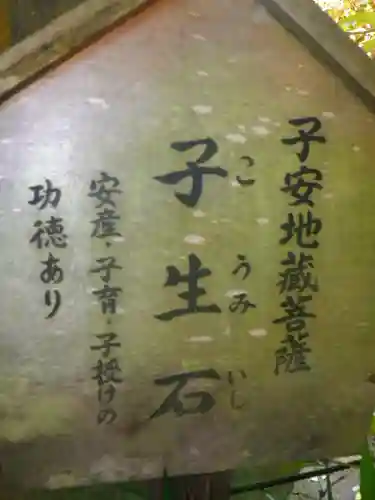 子安地蔵菩薩
子生石
こうみいし
安産・子育・子授けの
功徳あり